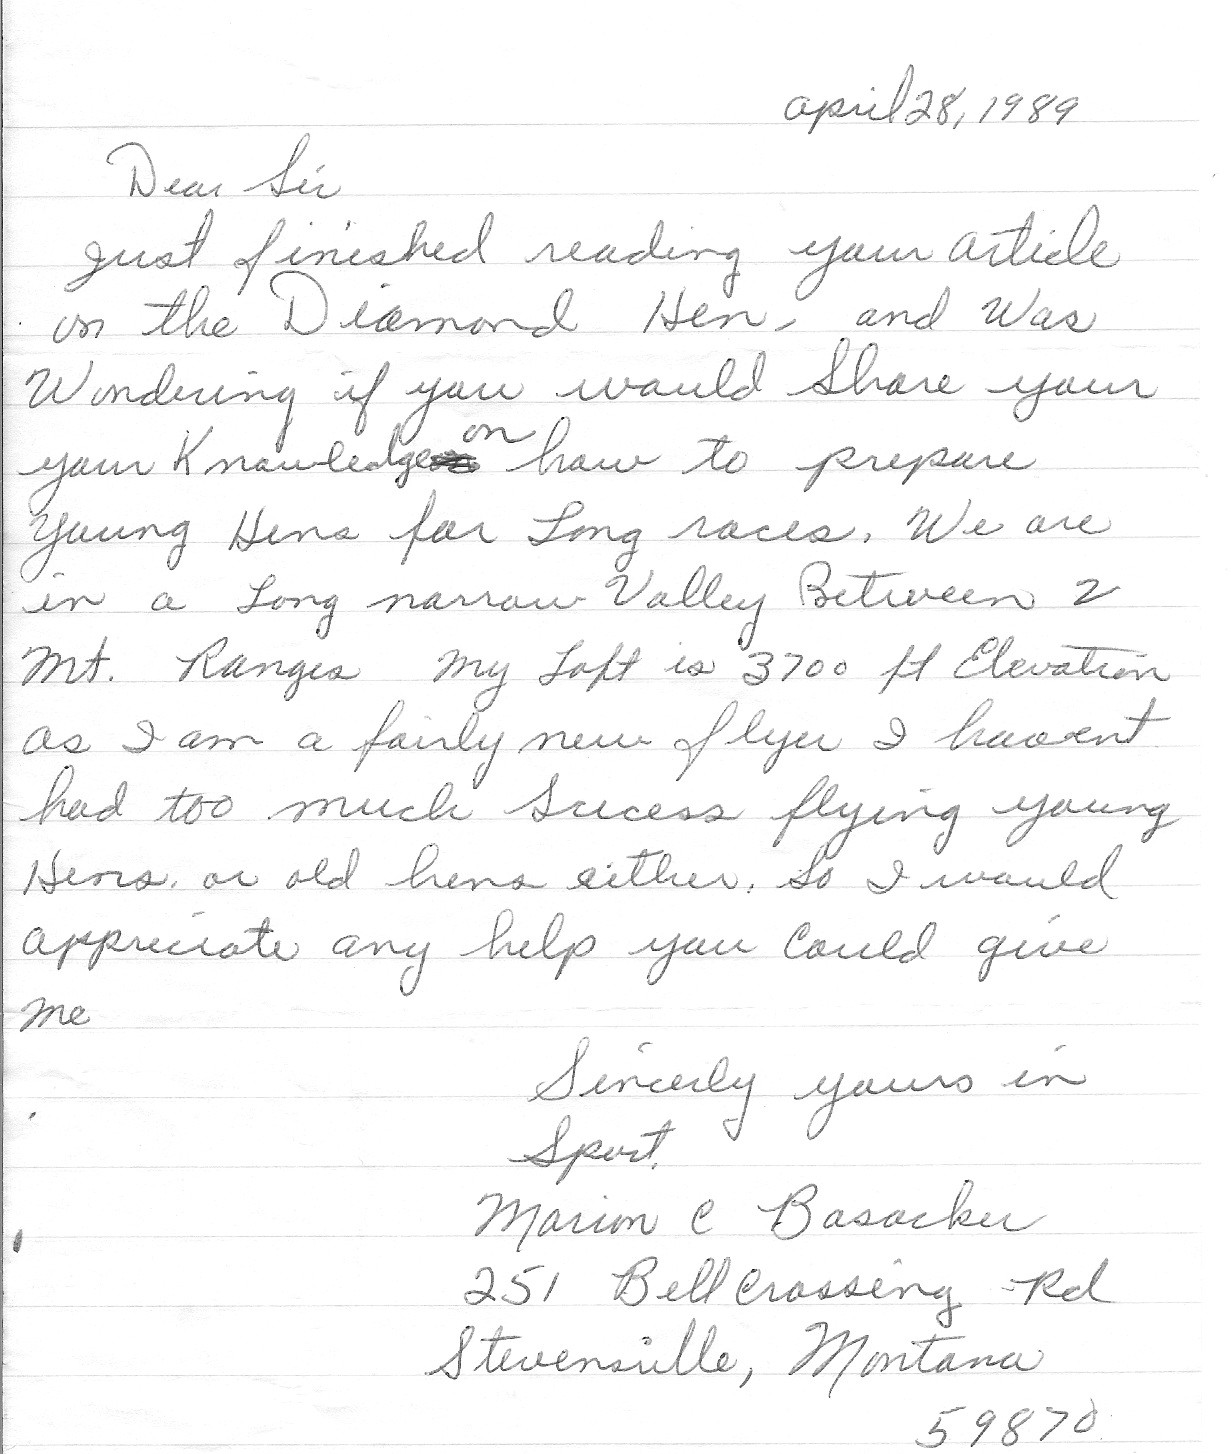 april 28, 1989
Dear Sir
Just finished reading your article
on the Diamond Hen, and Was
Wondering if you would Share your
your Knowledge on how to prepare
Young Hens for Long races. We are
in a Long narrow Valley Between 2
Mt. Ranges My Loft is 3700 ft Elevation
as I am a fairly new flyer I havent
had too much Sucess flying young
Hens. or old hens either. So I would
appreciate any help you Could give
me
Sincerly yours in
Sport.
Marion C Basacker
251 Bell Crossing Rd
Stevensville, Montana
59870